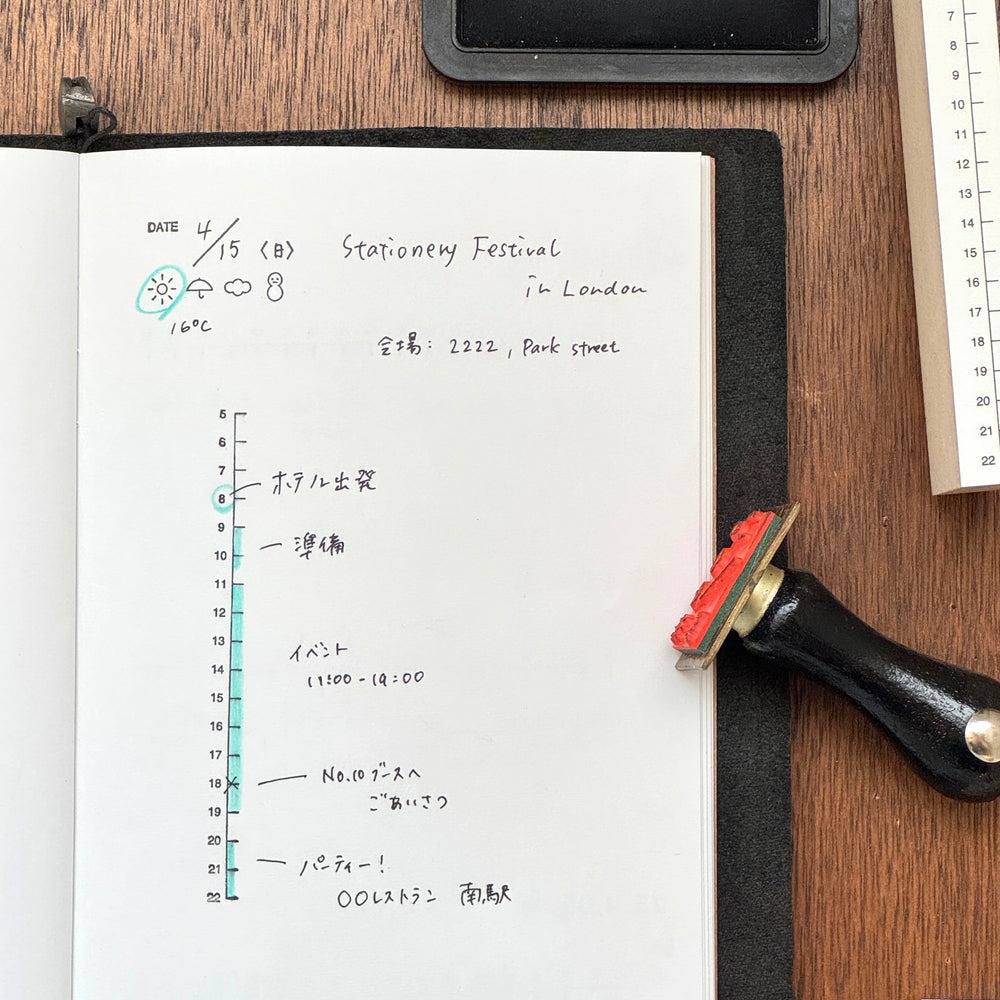 DATE 4/15〈日〉
Stationery Festival
in London
16℃
会場: 2222, Park street
5
6
7
8
ホテル出発
9
準備
10
11
12
13
イベント
14
11:00-19:00
15
16
17
18
No.10 ブースへ
ごあいさつ
19
20
21
パーティー!
22
〇〇レストラン 南駅
7
8
9
10
11
12
13
14
15
16
17
18
19
20
21
22